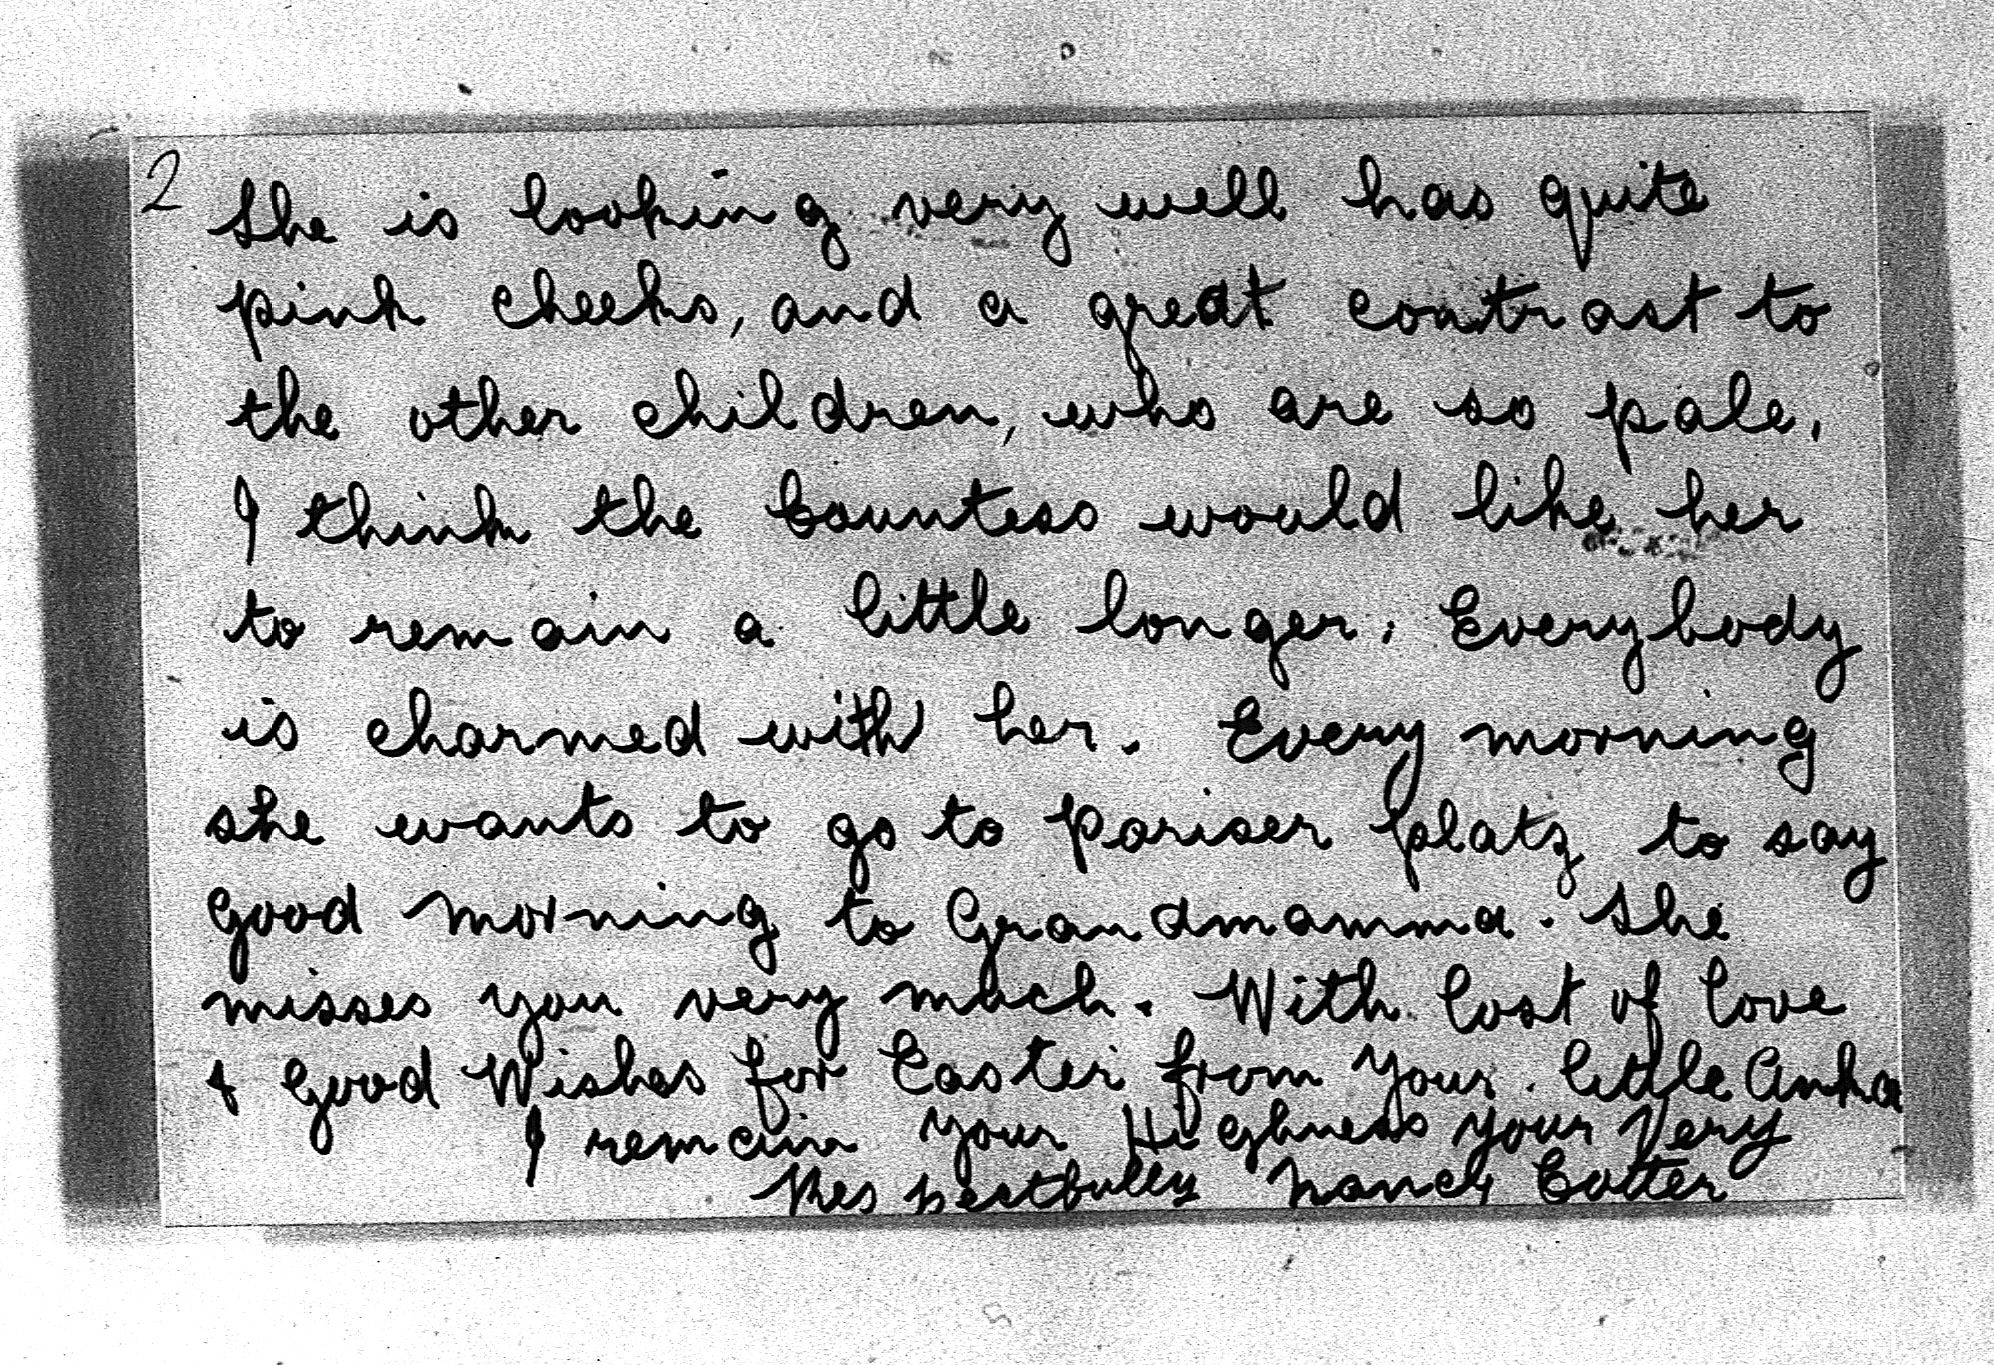 2
She is looking very well has quite
pink cheeks, and a great contrast to
the other children, who are so pale,
I think the Countess would like her
to remain a little longer. Everybody
is charmed with her. Every morning
she wants to go to Pariser platz to say
Good morning to Grandmamma. She
misses you very much. With lost of love
& Good Wishes for Easter from your little Anka
I remain your Highness your Very
Respectfully Nancy Cotter